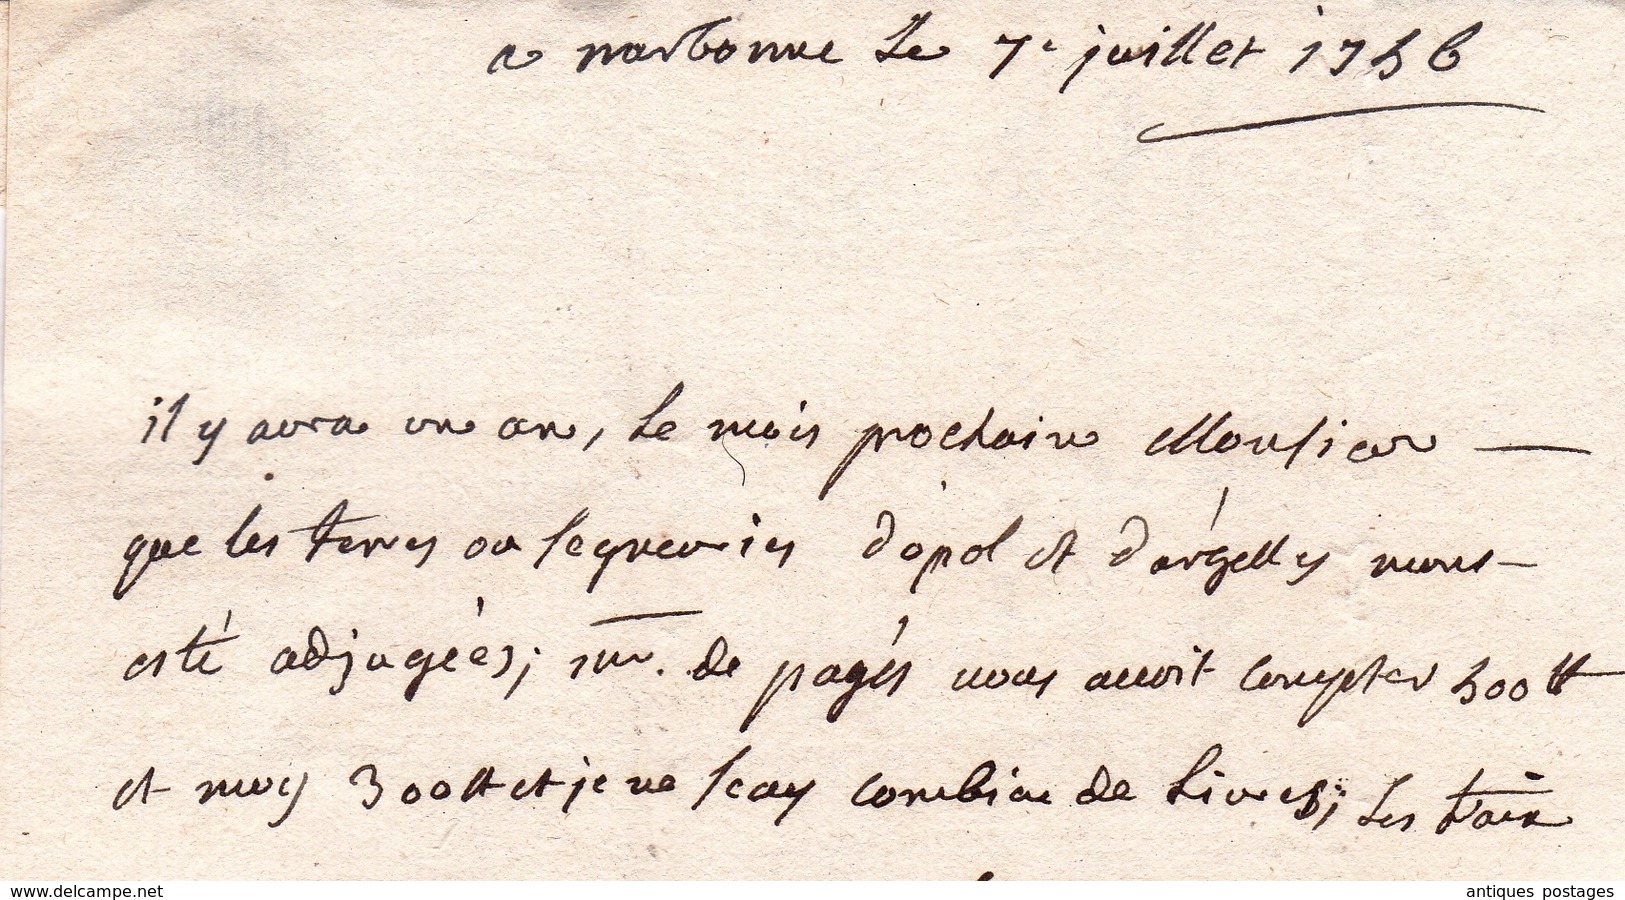 a narbonne Le 7e juillet 1756
il y aura un an, Le mois prochain Monsieur —
que les terres ou segneuries d'opol et d'argelles nous —
esté adjugées; mr. de pagés vous avoit compter 500 tt
et moy 300 tt et je ne scay combien de Livres; Les
www.delcampe.net
antiques postages